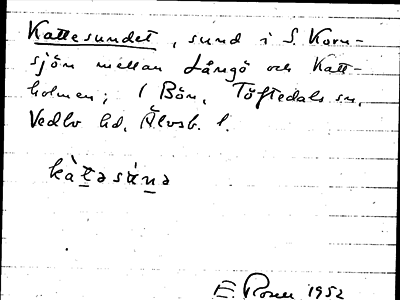 Kattesundet, sund i S. Korn-
sjön mellan Långö och Katt-
holmen; 1 Bön, Töftedals sn,
Vedbo hd, Älvsb. l.
kàtəsúnə
E. Rosen 1952